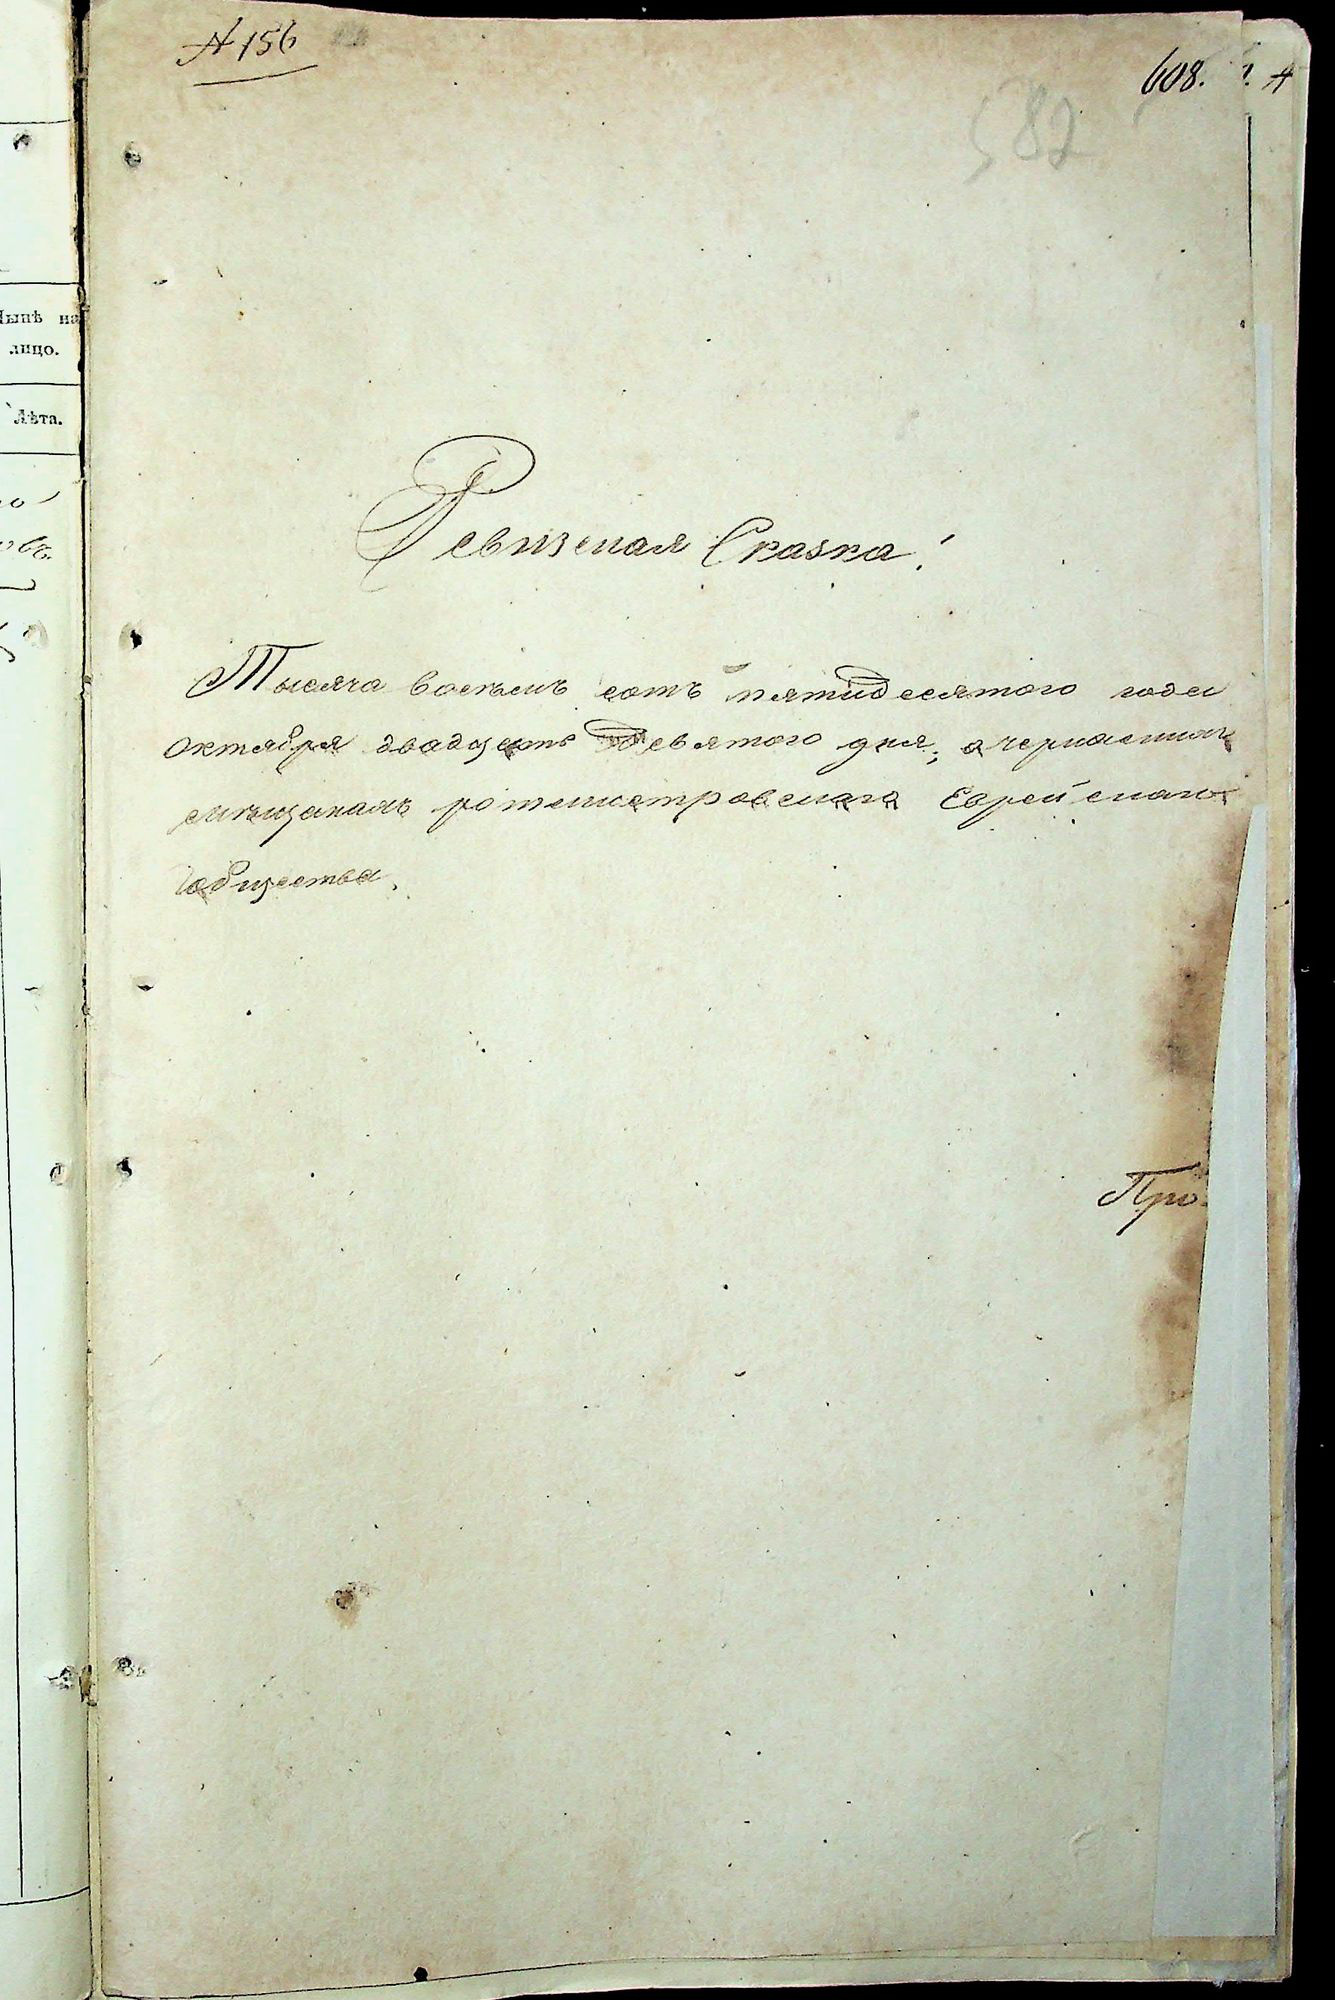 № 156
608.
582
Нынѣ на
лицо.
Лѣта.
Ревизская Сказка!
Тысяча восемь сотъ пятидесятого года
октября двадцать девятого дня, о
мещанахъ ротмистровского Еврейского
общества.
Про